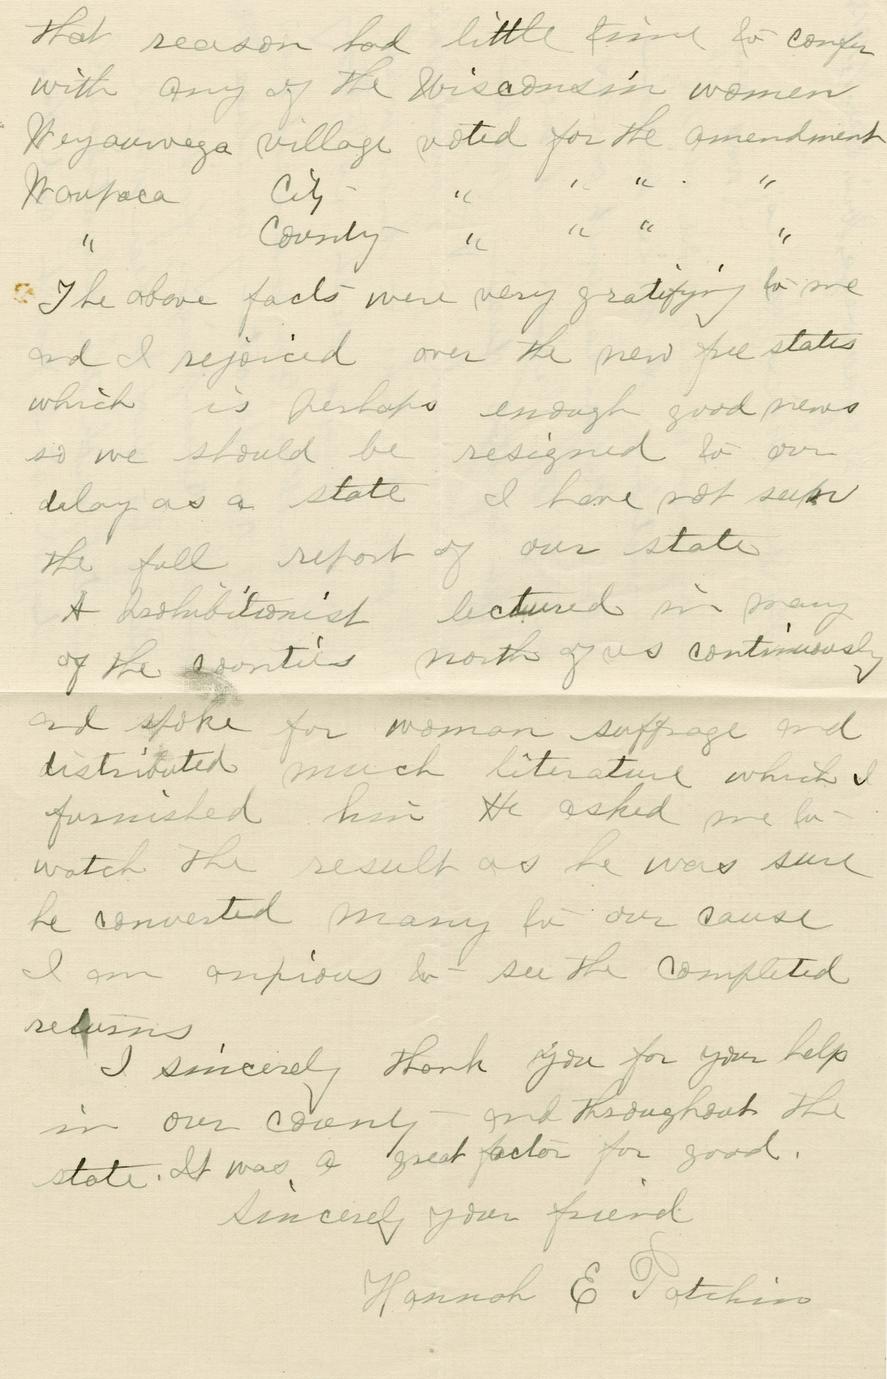 that reason had little time to confer
with any of the Wisconsin women
Weyauwega village voted for the amendment
Waupaca City - " " " "
" County - " " " "
The above facts were very gratifying to me
and I rejoiced over the new free states
which is perhaps enough good news
so we should be resigned to our
delay as a state I have not seen
the full report of our state
A Prohibitionist lectured in many
of the counties north of us continuously
and spoke for woman suffrage and
distributed much literature which I
furnished him He asked me to
watch the result as he was sure
he converted many to our cause
I am anxious to see the completed
returns
I sincerely thank you for your help
in our county and throughout the
state. It was a great factor for good.
Sincerely your friend
Hannah E Patchin